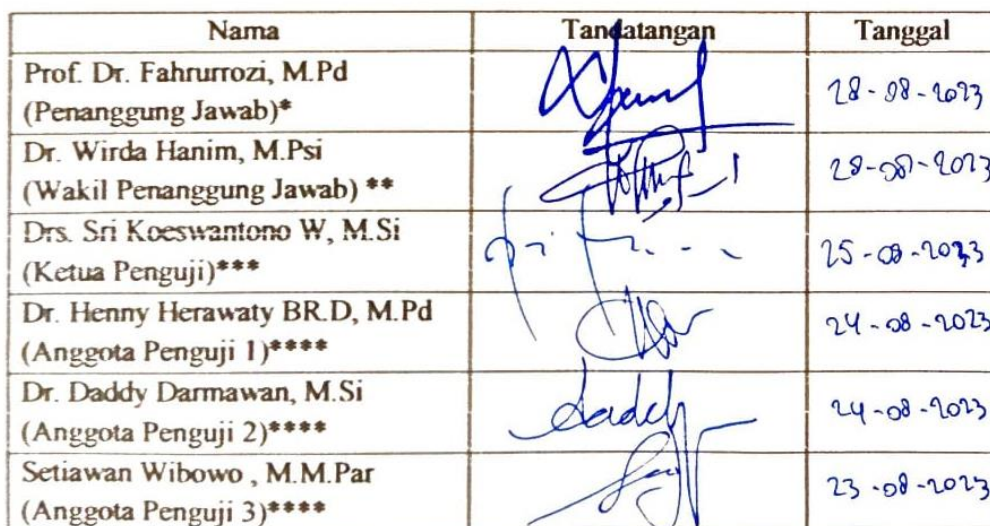 Nama Tandatangan Tanggal
Prof. Dr. Fahrurrozi, M.Pd
(Penanggung Jawab)* 28-08-2023
Dr. Wirda Hanim, M.Psi
(Wakil Penanggung Jawab) ** 28-08-2023
Drs. Sri Koeswantono W, M.Si
(Ketua Penguji)*** 25-08-2023
Dr. Henny Herawaty BR.D, M.Pd
(Anggota Penguji 1)**** 24-08-2023
Dr. Daddy Darmawan, M.Si
(Anggota Penguji 2)**** 24-08-2023
Setiawan Wibowo , M.M.Par
(Anggota Penguji 3)**** 23-08-2023